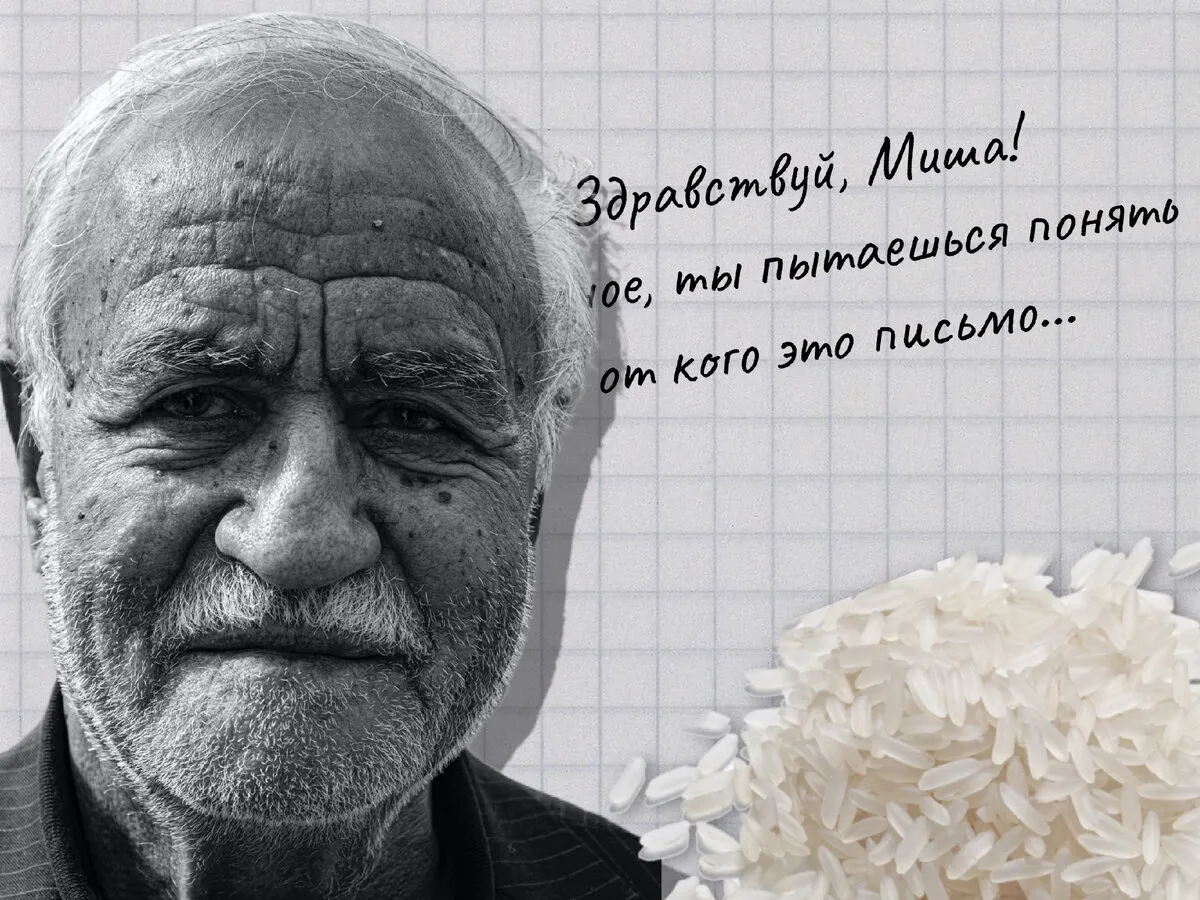 Здравствуй, Миша!
ты пытаешься понять
от кого это письмо...